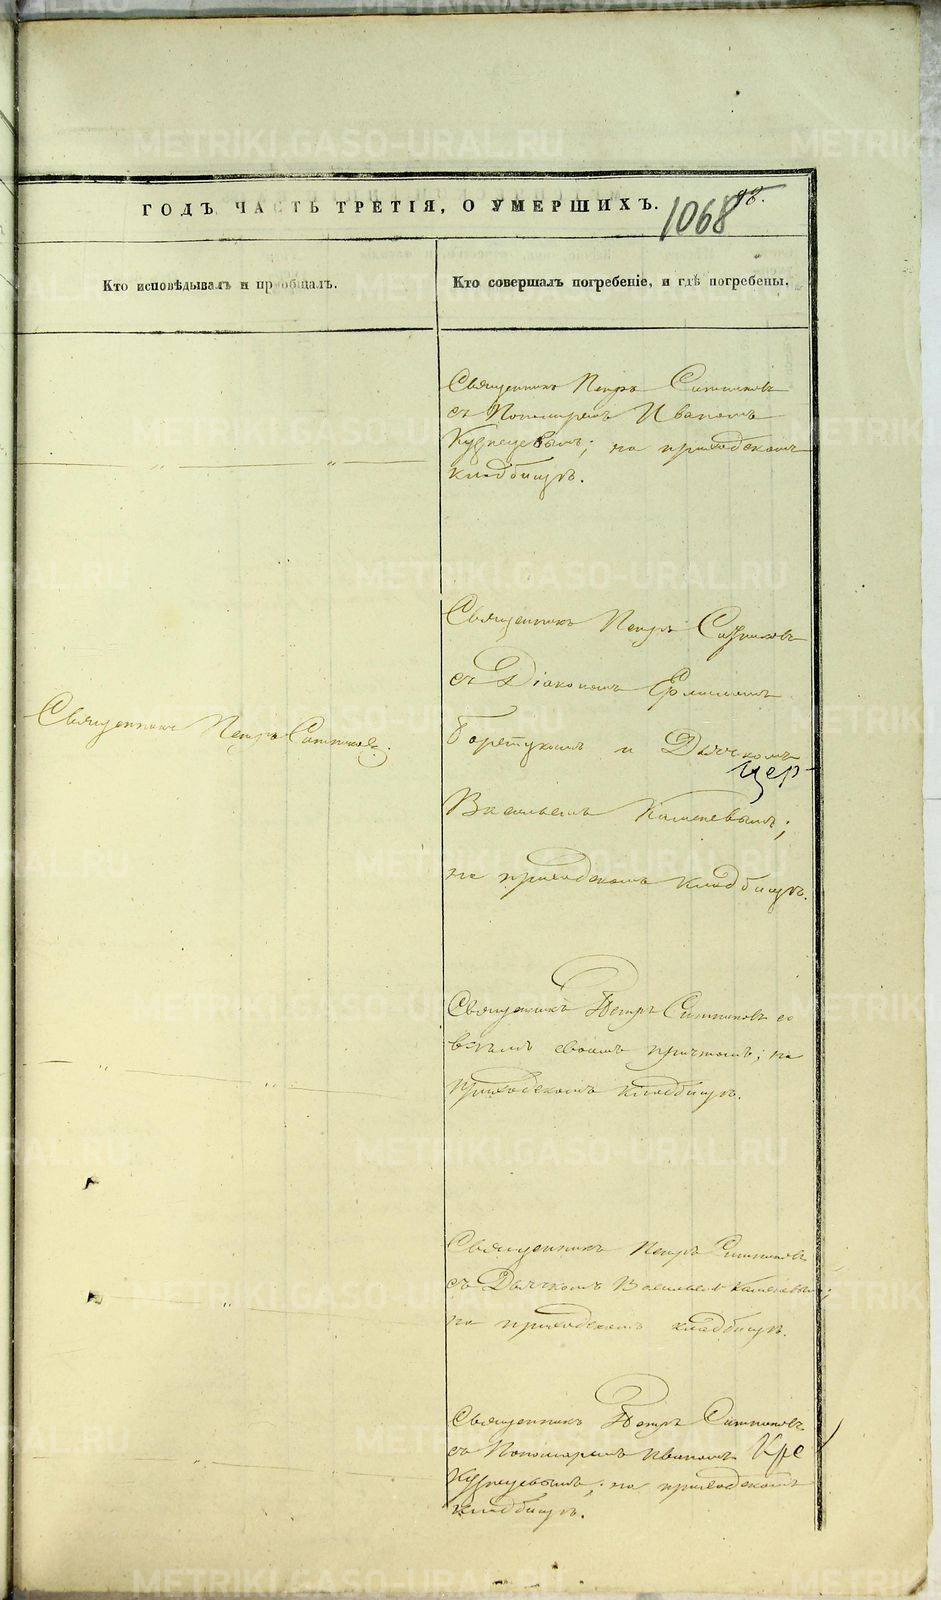 METRIKI.GASO-URAL.RU
ГОДЪ ЧАСТЬ ТРЕТІЯ, О УМЕРШИХЪ.
1068
98.
Кто исповѣдывалъ и пріобщалъ.
Кто совершалъ погребеніе, и гдѣ погребены.
Священникъ Петръ Ситниковъ
съ Пономаремъ Иваномъ
Кузнецовымъ; на приходскомъ
кладбищѣ.
Священникъ Петръ Ситниковъ.
Священникъ Петръ Ситниковъ
съ Діакономъ
и Дьячкомъ
цер
Васильемъ Каменевымъ;
на приходскомъ кладбищѣ.
Священникъ Петръ Ситниковъ со
всѣмъ своимъ причтомъ; на
приходскомъ кладбищѣ.
Священникъ Петръ Ситниковъ
съ Дьячкомъ Васильемъ Каменевымъ;
на приходскомъ кладбищѣ.
Священникъ Петръ Ситниковъ
съ Пономаремъ Иваномъ Кре
Кузнецовымъ; на приходскомъ
кладбищѣ.